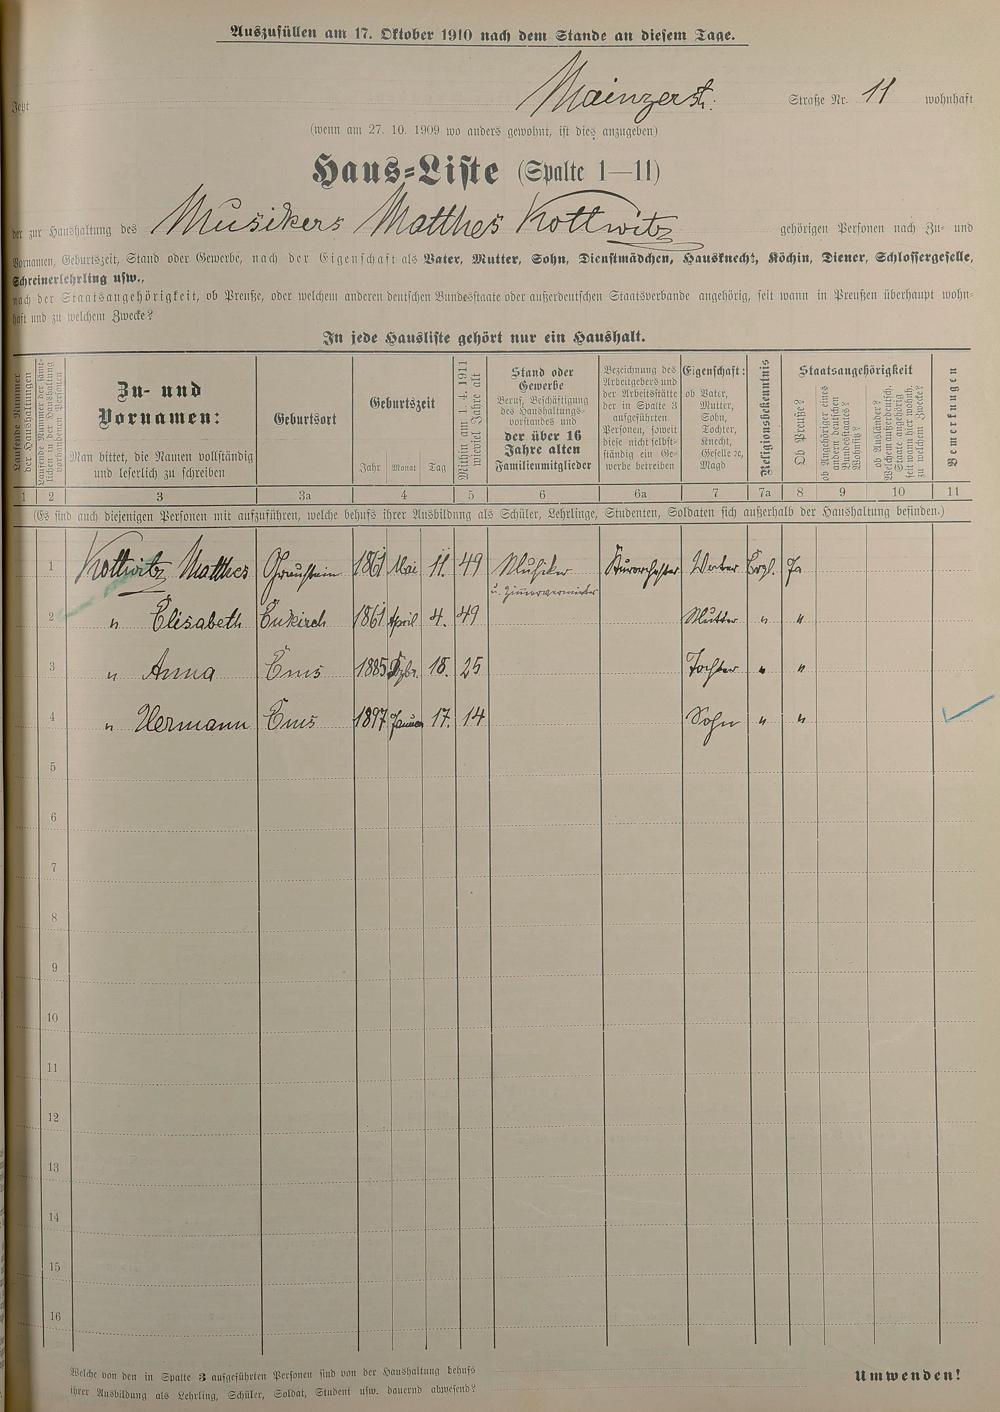 Auszufüllen am 17. Oktober 1910 nach dem Stande an diesem Tage.
Jetzt Mainzerst. Straße Nr. 11 wohnhaft
(wenn am 27. 10. 1909 wo anders gewohnt, ist dies anzugeben)
Haus-Liste (Spalte 1—11)
der zur Haushaltung des Musikers Matthes Kottwitz gehörigen Personen nach Zu- und
Vornamen, Geburtszeit, Stand oder Gewerbe, nach der Eigenschaft als Vater, Mutter, Sohn, Dienstmädchen, Hausknecht, Köchin, Diener, Schlossergeselle,
Schreinerlehrling usw.,
nach der Staatsangehörigkeit, ob Preuße, oder welchem anderen deutschen Bundesstaate oder außerdeutschen Staatsverbande angehörig, seit wann in Preußen überhaupt wohn-
haft und zu welchem Zwecke?
In jede Hausliste gehört nur ein Haushalt.
Laufende Nummer
der Haushaltungen
Laufende Nummer der sämt-
lichen in der Haushaltung
vorhandenen Personen
Zu- und
Vornamen:
Man bittet, die Namen vollständig
und leserlich zu schreiben
Geburtsort
Geburtszeit
Jahr Monat Tag
Mithin am 1. 4. 1911
wieviel Jahre alt
Stand oder
Gewerbe
Beruf, Beschäftigung
des Haushaltungs-
vorstandes und
der über 16
Jahre alten
Familienmitglieder
Bezeichnung des
Arbeitgebers und
der Arbeitsstätte
der in Spalte 3
aufgeführten
Personen, soweit
diese nicht selbst-
ständig ein Ge-
werbe betreiben
Eigenschaft:
ob Vater,
Mutter,
Sohn,
Tochter,
Knecht,
Geselle ꝛc,
Magd
Religionsbekenntnis
Staatsangehörigkeit
Ob Preuße?
ob Angehöriger eines
anderen deutschen
Bundesstaates?
Wohnsitz?
ob Ausländer?
Welchem außerdeutsch.
Staate angehörig
seit wann hier wohnh.
zu welchem Zwecke?
Bemerkungen
1 2 3 3a 4 5 6 6a 7 7a 8 9 10 11
(Es sind auch diejenigen Personen mit aufzuführen, welche behufs ihrer Ausbildung als Schüler, Lehrlinge, Studenten, Soldaten sich außerhalb der Haushaltung befinden.)
1 Kottwitz Matthes 1861 Mai 11. 49 Musiker Kurorchester Vater Ja
u. Zimmervermieter
2 " Elisabeth Enkirch 1861 April 4. 49 Mutter " "
3 " Anna Ems 1885 18. 25 Tochter " "
4 " Hermann Ems 1897 Januar 17. 14 Sohn " "
5
6
7
8
9
10
11
12
13
14
15
16
Welche von den in Spalte 3 aufgeführten Personen sind von der Haushaltung behufs
ihrer Ausbildung als Lehrling, Schüler, Soldat, Student usw. dauernd abwesend?
Umwenden!